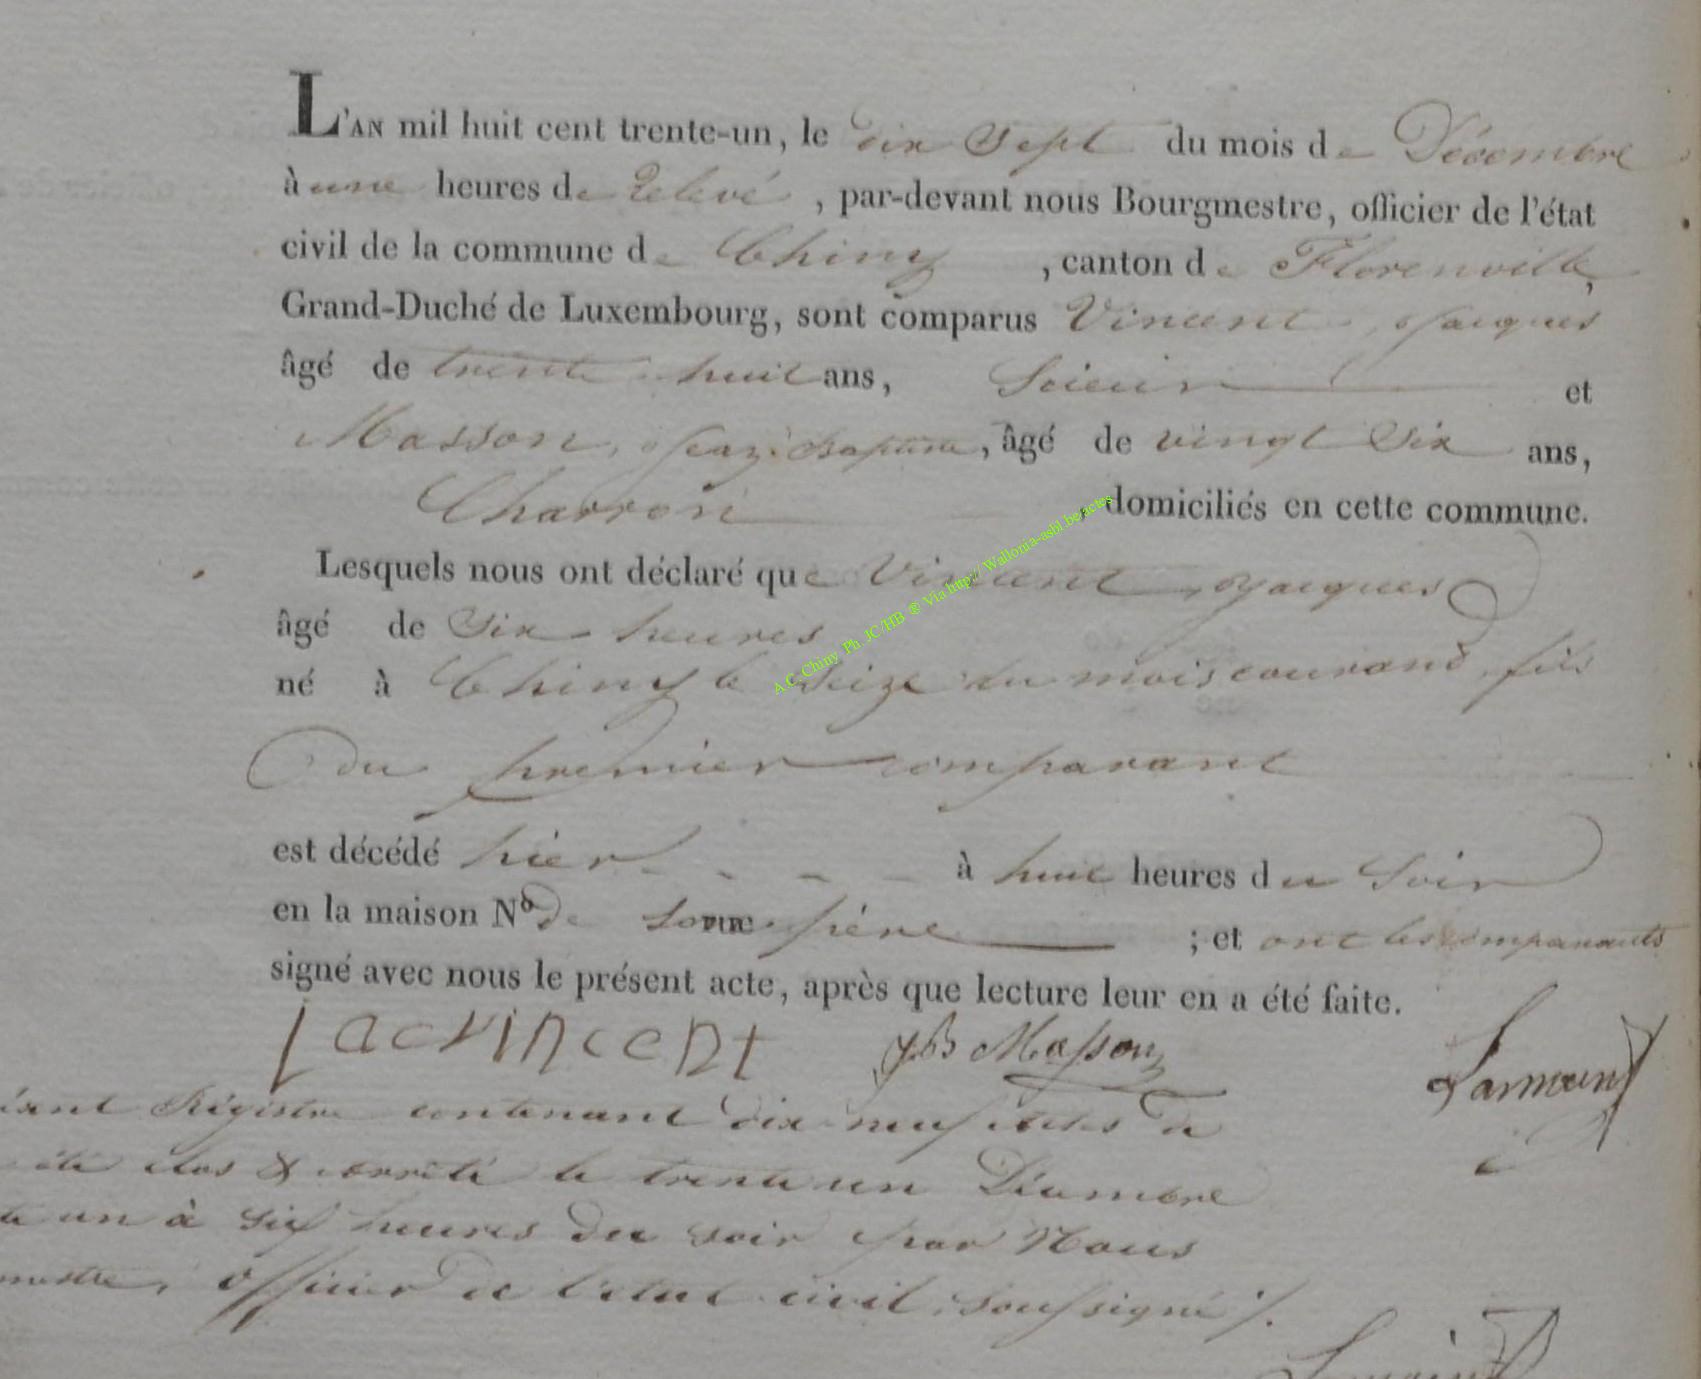 L'AN mil huit cent trente-un, le dix sept du mois de Décembre
à une heures de Relevé, par-devant nous Bourgmestre, officier de l'état
civil de la commune de Chiny, canton de Florenville,
Grand-Duché de Luxembourg, sont comparus Vincent, Jacques
âgé de trente huit ans, Scieur et
Masson, Jean Baptiste, âgé de vingt Six ans,
Charron, domiciliés en cette commune.
Lesquels nous ont déclaré que Vincent, Jacques
âgé de Six heures
né à Chiny le Seize du mois courand, fils
du premier comparant
est décédé hier à huit heures du Soir
en la maison Nº de son rue père ; et ont les comparants
signé avec nous le présent acte, après que lecture leur en a été faite.
Jacvincent JB Masson
Régistre contenant dix neuf actes a
été clos & arrêté le trente un Décembre
un à six heures du soir par Nous
officier de l'état civil, soussigné
A.C. Chiny Ph. JC/HB ® Via http://Wallonia-asbl.be/actes